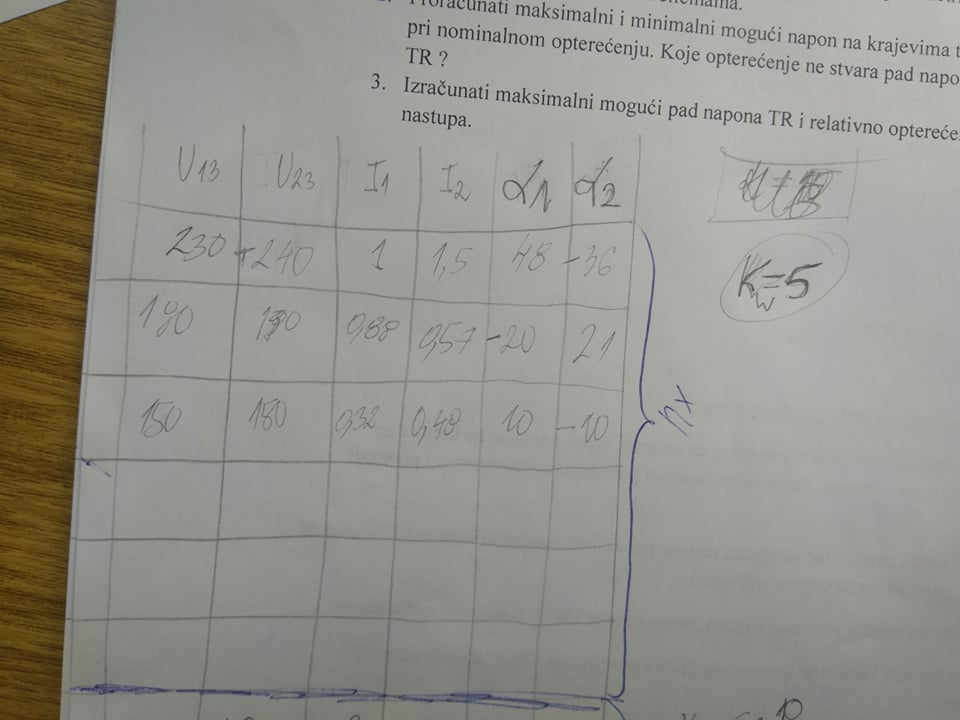 Proračunati maksimalni i minimalni mogući napon na krajevima t
pri nominalnom opterećenju. Koje opterećenje ne stvara pad napo
TR ?
3. Izračunati maksimalni mogući pad napona TR i relativno optereće
nastupa.
U13 U23 I1 I2 α1 α2
230 240 1 1,5 48 -36
190 190 0,88 0,57 -20 21
150 150 0,32 0,48 10 -10
nx
Kw=5
10